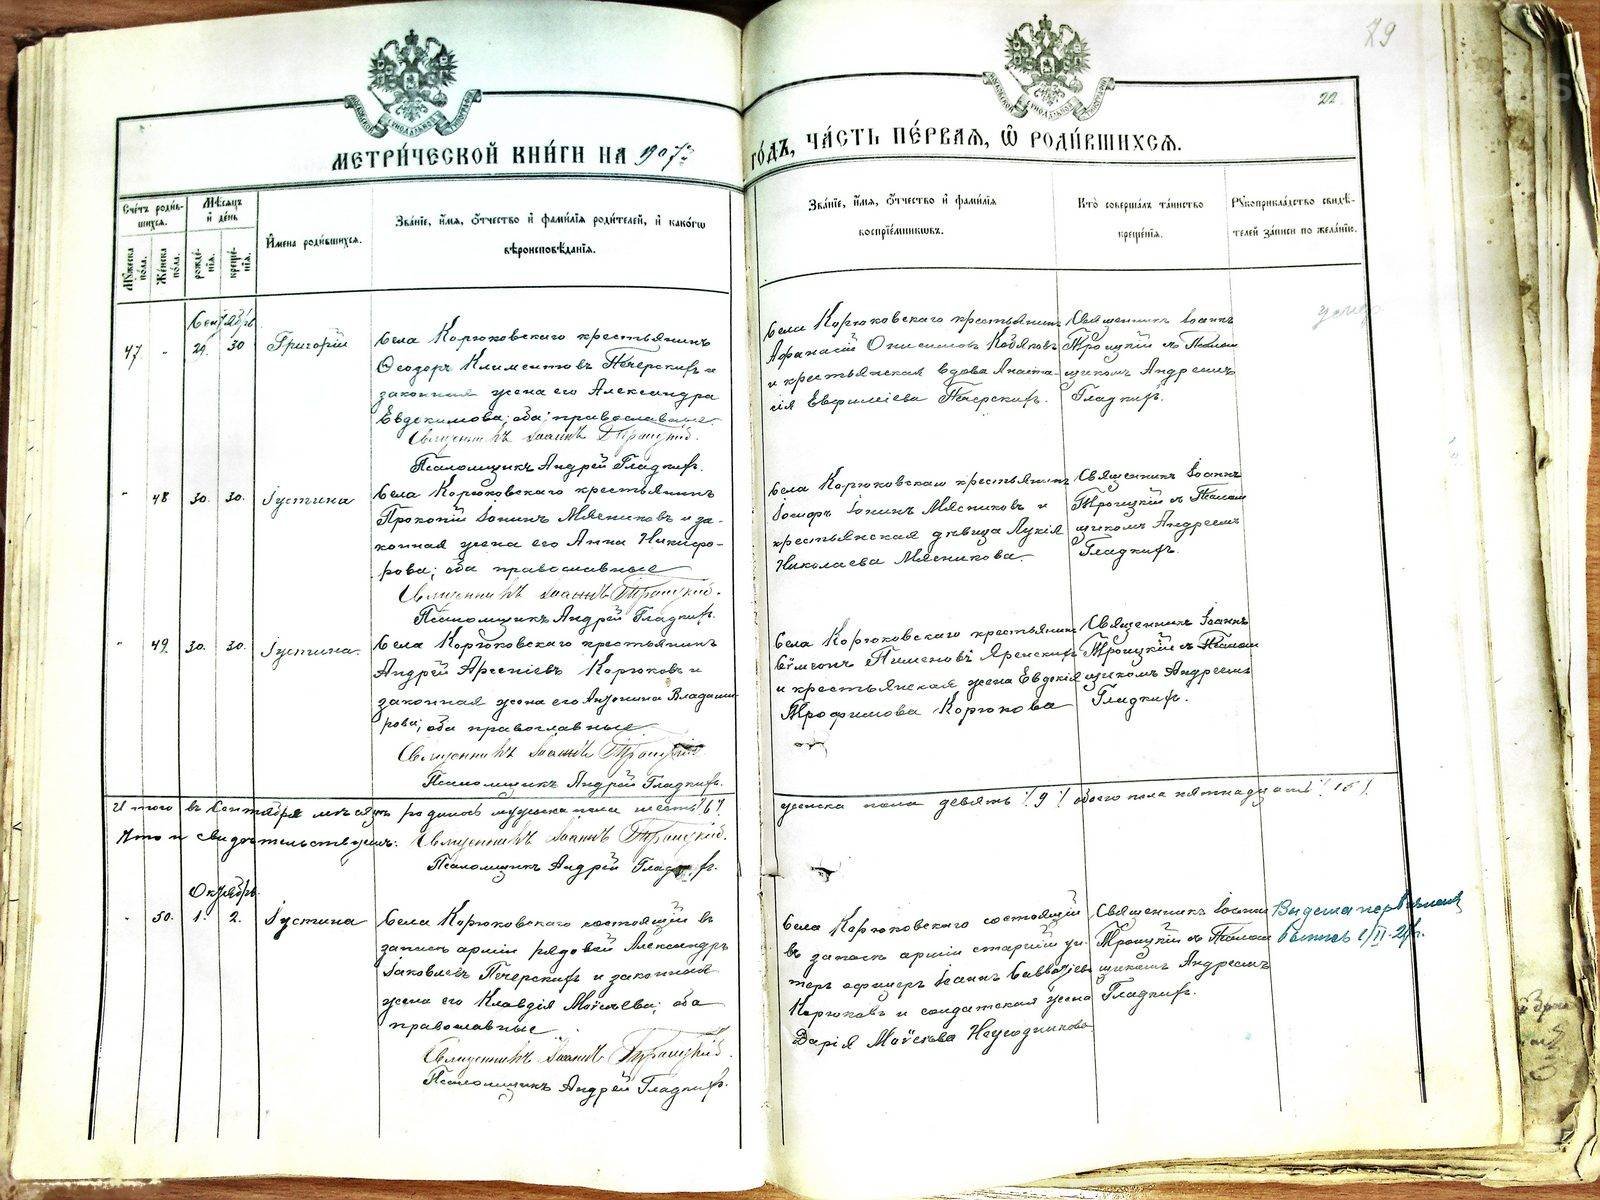 29
22
МЕТРИ́ЧЕСКОЙ КНИ́ГИ НА 1907й
ГО́ДЪ, ЧА́СТЬ ПЕ́РВАЯ, Ѡ҆ РОДИ́ВШИХСЯ.
Сче́тъ роди́в-
шихся.
Мꙋ́жеска по́ла.
Же́нска по́ла.
Мѣ́сяцъ
и҆ де́нь
рожде́-
нїя.
креще́-
нїя.
И҆мена роди́вшихся.
Зва́нїе, и҆́мя, ѻ҆́тчество и҆ фами́лїя роди́телей, и҆ како́гѡ
вѣроисповѣ́данїя.
Зва́нїе, и҆́мя, ѻ҆́тчество и҆ фами́лїя
воспрїе́мниковъ.
Кто̀ соверша́лъ та́инство
креще́нїя.
Рꙋкоприкла́дство свидѣ́-
телей за́писи по жела́нїю.
Сентябрь
47 " 29. 30 Григорій
Села Корюковскаго крестьянинъ
Ѳеодоръ Климентовъ Печерскихъ и
законная жена его Александра
Евдокимова; оба православные.
Священникъ Іоаннъ Троицкій.
Псаломщикъ Андрей Гладкихъ.
Села Корюковскаго крестьянинъ
Афанасій Онисимовъ Кобяковъ
и крестьянская вдова Анаста-
сія Евфиміева Печерскихъ.
Священникъ Іоаннъ
Троицкій съ Псалом
щикомъ Андреемъ
Гладкихъ.
умер.
" 48 30. 30. Іустина
Села Корюковскаго крестьянинъ
Прокопій Іонинъ Мясниковъ и за-
конная жена его Анна Никифо-
рова; оба православные
Священникъ Іоаннъ Троицкій.
Псаломщикъ Андрей Гладкихъ.
Села Корюковскаго крестьянинъ
Іосифъ Іонинъ Мясниковъ и
крестьянская дѣвица Лукія
Николаева Мясникова.
Священникъ Іоаннъ
Троицкій съ Псалом
щикомъ Андреемъ
Гладкихъ.
" 49. 30. 30. Іустина.
Села Корюковскаго крестьянинъ
Андрей Арсеніевъ Корюковъ и
законная жена его Антонина Владими
рова; оба православные
Священникъ Іоаннъ Троицкій
Псаломщикъ Андрей Гладкихъ.
Села Корюковскаго крестьянинъ
Сѵмеонъ Пименовъ Яренскихъ
и крестьянская жена Евдокія
Трофимова Корюкова
Священникъ Іоаннъ
Троицкій съ Псалом
щикомъ Андреемъ
Гладкихъ.
Итого въ Сентябрѣ мѣсяцѣ родилось мужска пола шесть /6/
женска пола девять /9/ обоего пола пятнадцать /15/
Что и свидѣтельствуемъ: Священникъ Іоаннъ Троицкій.
Псаломщикъ Андрей Гладкихъ.
Октябрь
" 50. 1. 2. Іустина
Села Корюковскаго состоящій въ
запасѣ арміи рядовой Александръ
Іаковлевъ Печерскихъ и законная
жена его Клавдія Моѵсеева; оба
православные
Священникъ Іоаннъ Троицкій.
Псаломщикъ Андрей Гладкихъ.
Села Корюковскаго состоящій
въ запасѣ арміи старшій ун-
теръ офицеръ Іоаннъ Савватіевъ
Корюковъ и солдатская жена
Дарія Моѵсеева Неугодникова
Священникъ Іоаннъ
Троицкій съ Псалом
щикомъ Андреемъ
Гладкихъ.